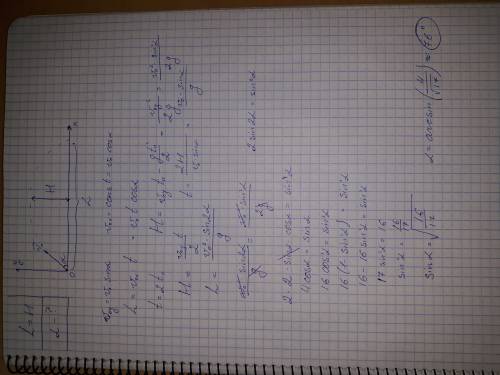 L = H
α - ?
y
v₀
α
0
H
L
x
v₀y = v₀ sinα  v₀x = const = v₀ cosα
L = v₀x t = v₀ t cosα
t = 2t₁  H = v₀y t₁ - gt₁²/2 = v₀y²/2g = v₀² sin²α/2g
H = v₀y t/2
L = v₀² sin2α/g
v₀² sin2α/g = v₀² sin²α/2g  2 sin2α = sin²α
2 · 2 · sinα cosα = sin²α
4 cosα = sinα
16 cos²α = sin²α
16 (1 - sin²α) = sin²α
16 - 16 sin²α = sin²α
17 sin²α = 16
sin²α = 16/17
sinα = √(16/17)
α = arcsin(4/√17) ≈ 76°